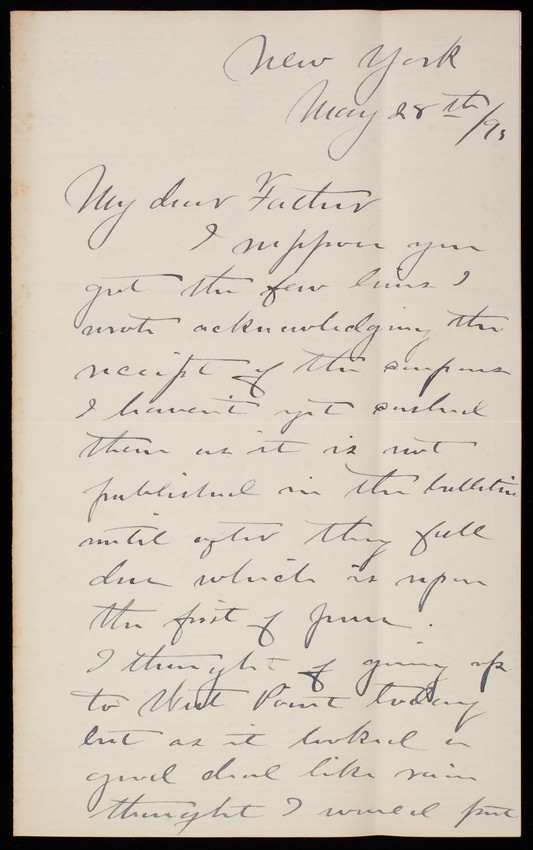 New York
May 28th/93
My dear Father
I suppose you
got the few lines I
wrote acknowledging the
receipt of the coupons
I haven't yet cashed
them as it is not
published in the bulletin
until after they fall
due which is upon
the first of June.
I thought of going up
to West Point today
but as it looked a
good deal like rain
thought I would put